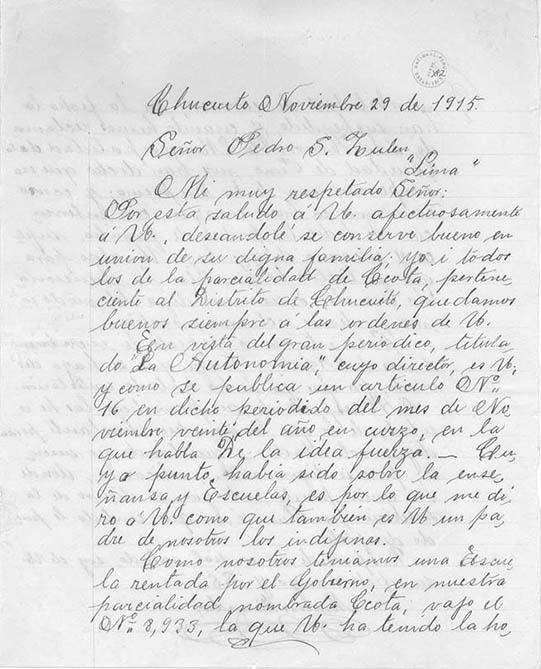 Chucuito Noviembre 29 de 1915.
Señor Pedro S. Zulen
"Lima"
Mi muy respetado Señor:
Por esta saludo á U. afectuosamente
á U., deseandolé se conserve bueno en
union de su digna familia: yo i todos
los de la parcialidad de Ccota, pertene,
ciente al Distrito de Chucuito, quedamos
buenos siempre á las ordenes de U.
En vista del gran periodico, titula,
do "La Autonomia," cuyo director, es U,
y como se publica un articulo Nº
16 en dicho periodido del mes de No,
viembre veinte del año en curzo, en la
que habla De la idea fuerza. — Cu,
yo punto, habia sido sobre la ense,
ñansa y Escuelas, es por lo que me di
ro á U. como que también es U un pa,
dre de nosotros los indijinas.
Como nosotros teniamos una Escue
la rentada por el Gobierno, en nuestra
parcialidad nombrada Ccota, vajo el
Nº 8,933, la que U. ha tenido la ho,